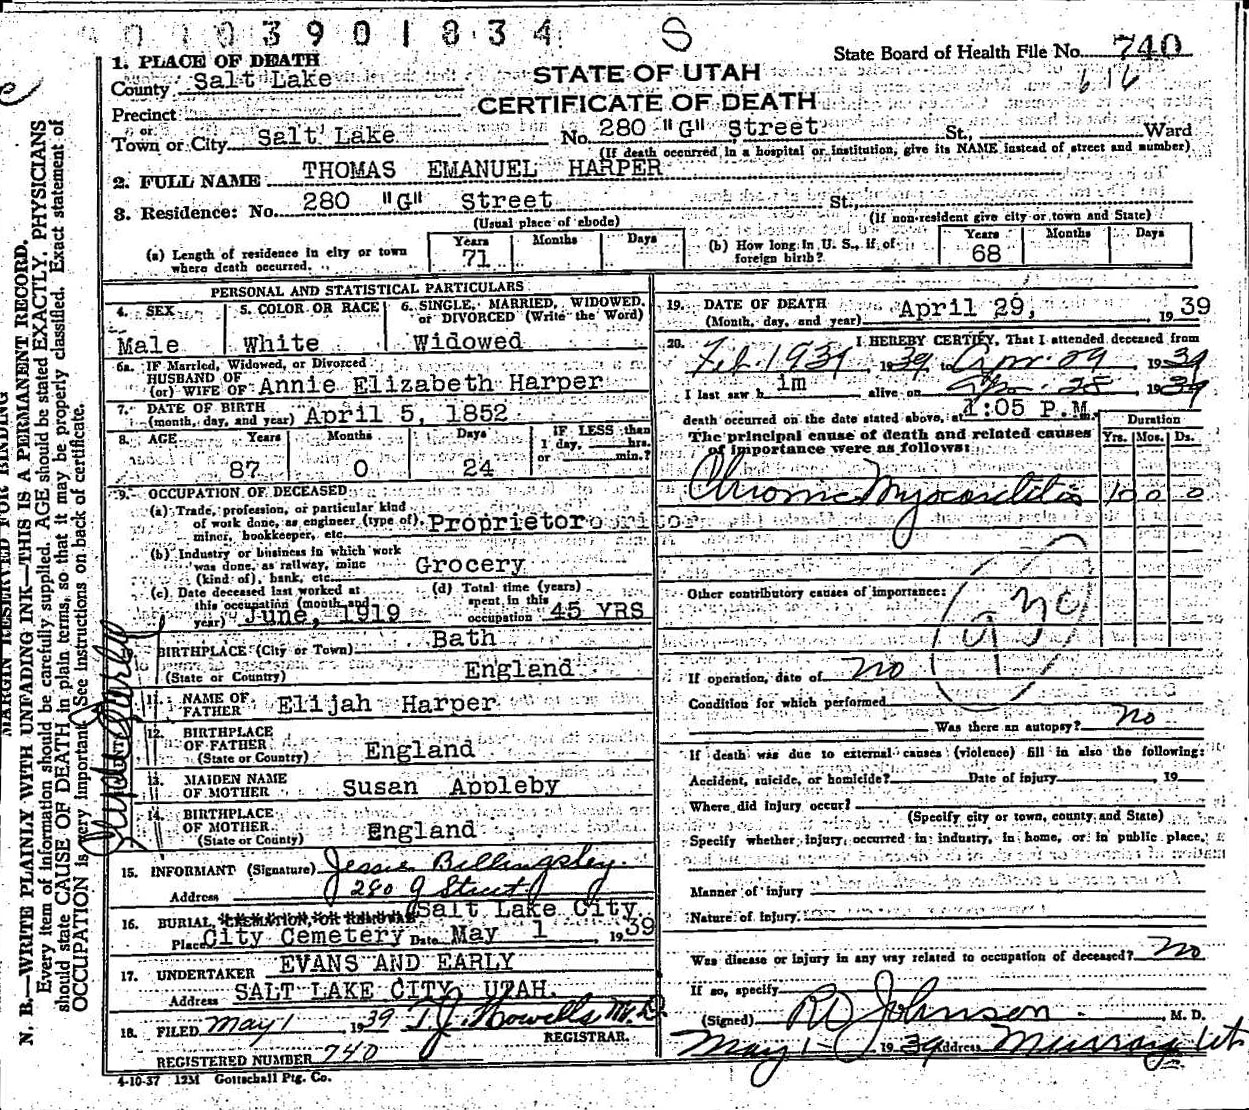 0103901834 S
State Board of Health File No. 740
616
1. PLACE OF DEATH
County Salt Lake
STATE OF UTAH
CERTIFICATE OF DEATH
Precinct
or
Town or City Salt Lake No. 280 "G" Street St., Ward
(If death occurred in a hospital or institution, give its NAME instead of street and number)
2. FULL NAME THOMAS EMANUEL HARPER
3. Residence: No. 280 "G" Street St.,
(Usual place of abode) (If non-resident give city or town and State)
(a) Length of residence in city or town where death occurred. Years 71 Months Days
(b) How long in U. S., if of foreign birth? Years 68 Months Days
PERSONAL AND STATISTICAL PARTICULARS
4. SEX Male
5. COLOR OR RACE White
6. SINGLE, MARRIED, WIDOWED, or DIVORCED (Write the Word) Widowed
6a. IF Married, Widowed, or Divorced
HUSBAND OF
(or) WIFE OF Annie Elizabeth Harper
7. DATE OF BIRTH
(month, day, and year) April 5, 1852
8. AGE Years 87 Months 0 Days 24 IF LESS than 1 day, hrs. or min.?
9. OCCUPATION OF DECEASED
(a) Trade, profession, or particular kind
of work done, as engineer (type of),
miner, bookkeeper, etc. Proprietor
(b) Industry or business in which work
was done, as railway, mine
(kind of), bank, etc. Grocery
(c) Date deceased last worked at
this occupation (month and
year) June, 1919
(d) Total time (years)
spent in this
occupation 45 YRS
BIRTHPLACE (City or Town) Bath
(State or Country) England
11. NAME OF FATHER Elijah Harper
12. BIRTHPLACE OF FATHER
(State or Country) England
13. MAIDEN NAME OF MOTHER Susan Appleby
14. BIRTHPLACE OF MOTHER
(State or County) England
15. INFORMANT (Signature) Jessie Billingsley
Address 280 G Street
16. BURIAL, CREMATION, OR REMOVAL Salt Lake City
Place City Cemetery Date May 1, 1939
17. UNDERTAKER EVANS AND EARLY
Address SALT LAKE CITY, UTAH.
18. FILED May 1 1939 T.J. Howells M.D.
REGISTRAR.
REGISTERED NUMBER 740
4-10-37 12M Gottschall Ptg. Co.
19. DATE OF DEATH
(Month, day, and year) April 29, 1939
20. I HEREBY CERTIFY, That I attended deceased from
Feb. 1939 1939 to Apr. 29 1939
I last saw him alive on Apr. 28 1939
death occurred on the date stated above, at 1:05 P.M.
The principal cause of death and related causes
of importance were as follows:
Duration
Yrs. Mos. Ds.
Chronic Myocarditis 10 0 0
Other contributory causes of importance:
93c
If operation, date of no
Condition for which performed
Was there an autopsy? no
If death was due to external causes (violence) fill in also the following:
Accident, suicide, or homicide? Date of injury 19
Where did injury occur?
(Specify city or town, county and State)
Specify whether injury occurred in industry, in home, or in public place,
Manner of injury
Nature of injury
Was disease or injury in any way related to occupation of deceased? no
If so, specify
(Signed) RD Johnson, M. D.
May 1 - 1939 Address Murray Ut
MARGIN RESERVED FOR BINDING
N. B.—WRITE PLAINLY WITH UNFADING INK—THIS IS A PERMANENT RECORD.
Every item of information should be carefully supplied. AGE should be stated EXACTLY. PHYSICIANS
should state CAUSE OF DEATH in plain terms, so that it may be properly classified. Exact statement of
OCCUPATION is very important. See instructions on back of certificate.